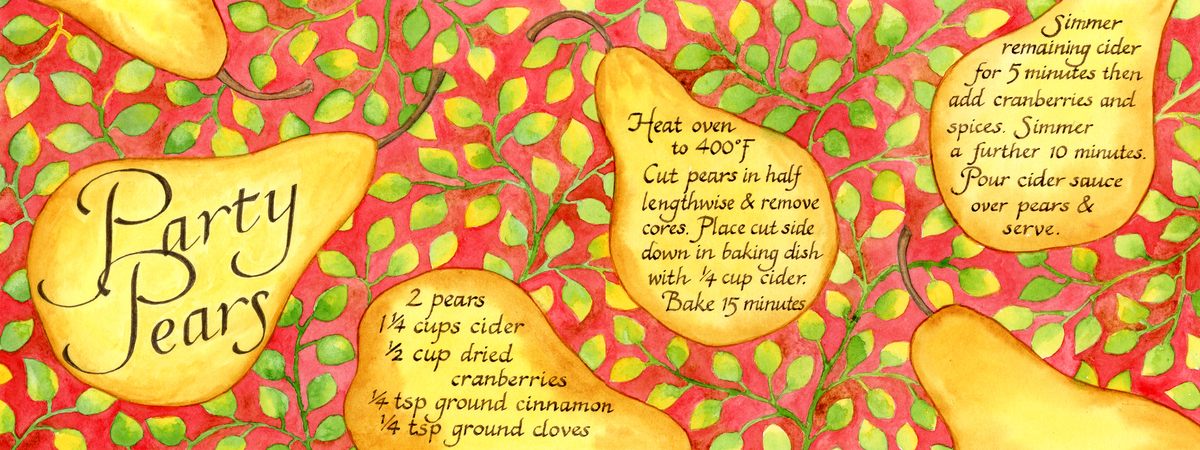 Party
Pears
2 pears
1¼ cups cider
½ cup dried
cranberries
¼ tsp ground cinnamon
¼ tsp ground cloves
Heat oven
to 400°F
Cut pears in half
lengthwise & remove
cores. Place cut side
down in baking dish
with ¼ cup cider.
Bake 15 minutes
Simmer
remaining cider
for 5 minutes then
add cranberries and
spices. Simmer
a further 10 minutes.
Pour cider sauce
over pears &
serve.